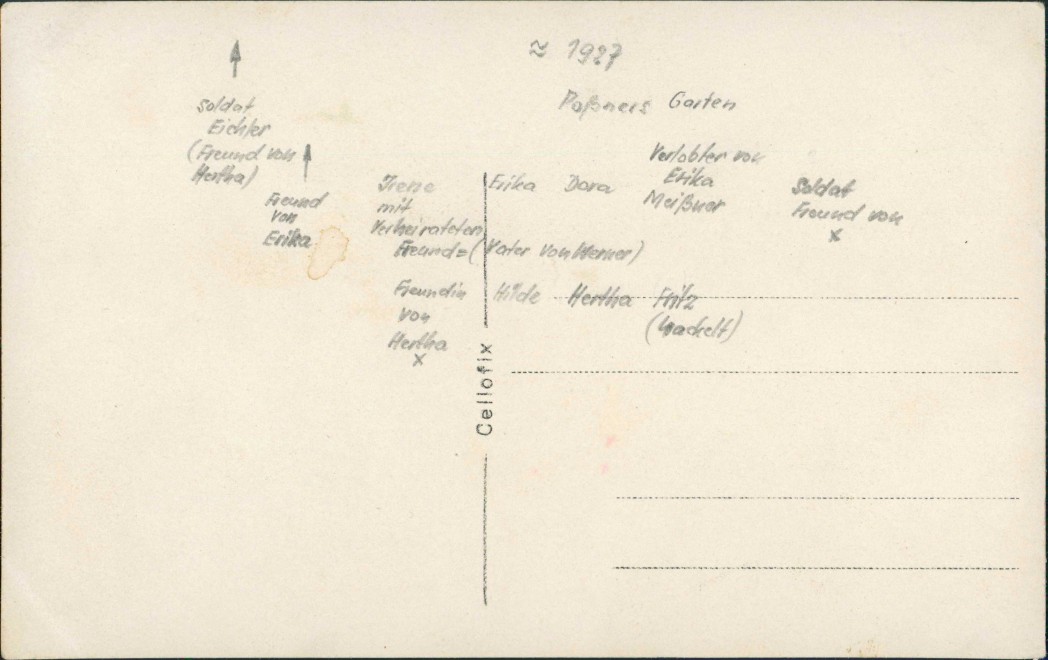 ≈ 1927
Poßners Garten
Soldat
Eichler
(Freund von
Hertha)
Freund
von
Erika
Irene
mit
Verheirateten
Freund=(Vater von Werner)
Erika
Dora
Verlobter von
Erika
Meißner
Soldat
Freund von
x
Freundin
von
Hertha
x
Hilde
Hertha
Fritz
(wackelt)
Cellofix